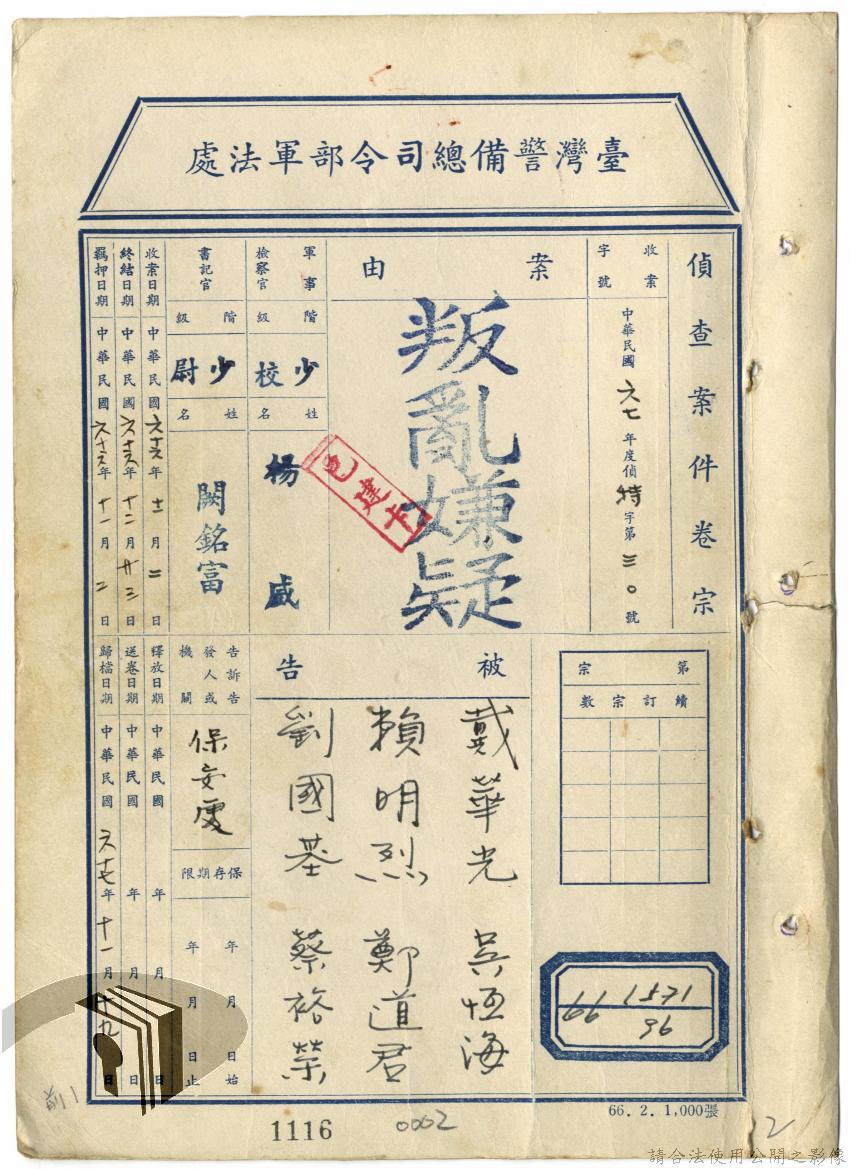 臺灣警備總司令部軍法處
偵查案件卷宗
收案字號
中華民國六七年度偵特字第三〇號
案由
叛亂嫌疑
已建卡
軍事檢察官
階級
少校
姓名
楊威
書記官
階級
少尉
姓名
闕銘富
收案日期 中華民國六十六年十一月二日
終結日期 中華民國六十六年十二月廿三日
羈押日期 中華民國六十六年十一月二日
第宗
續訂宗數
被告
戴華光 吳恆海
賴明烈 鄭道君
劉國基 蔡裕榮
告訴告發人或機關
保安處
保存期限
年月日始
年月日止
釋放日期 中華民國 年 月 日
送卷日期 中華民國 年 月 日
歸檔日期 中華民國六十七年十一月十九日
66 1571
96
66.2.1,000張
1116
0002
2
請合法使用公開之影像